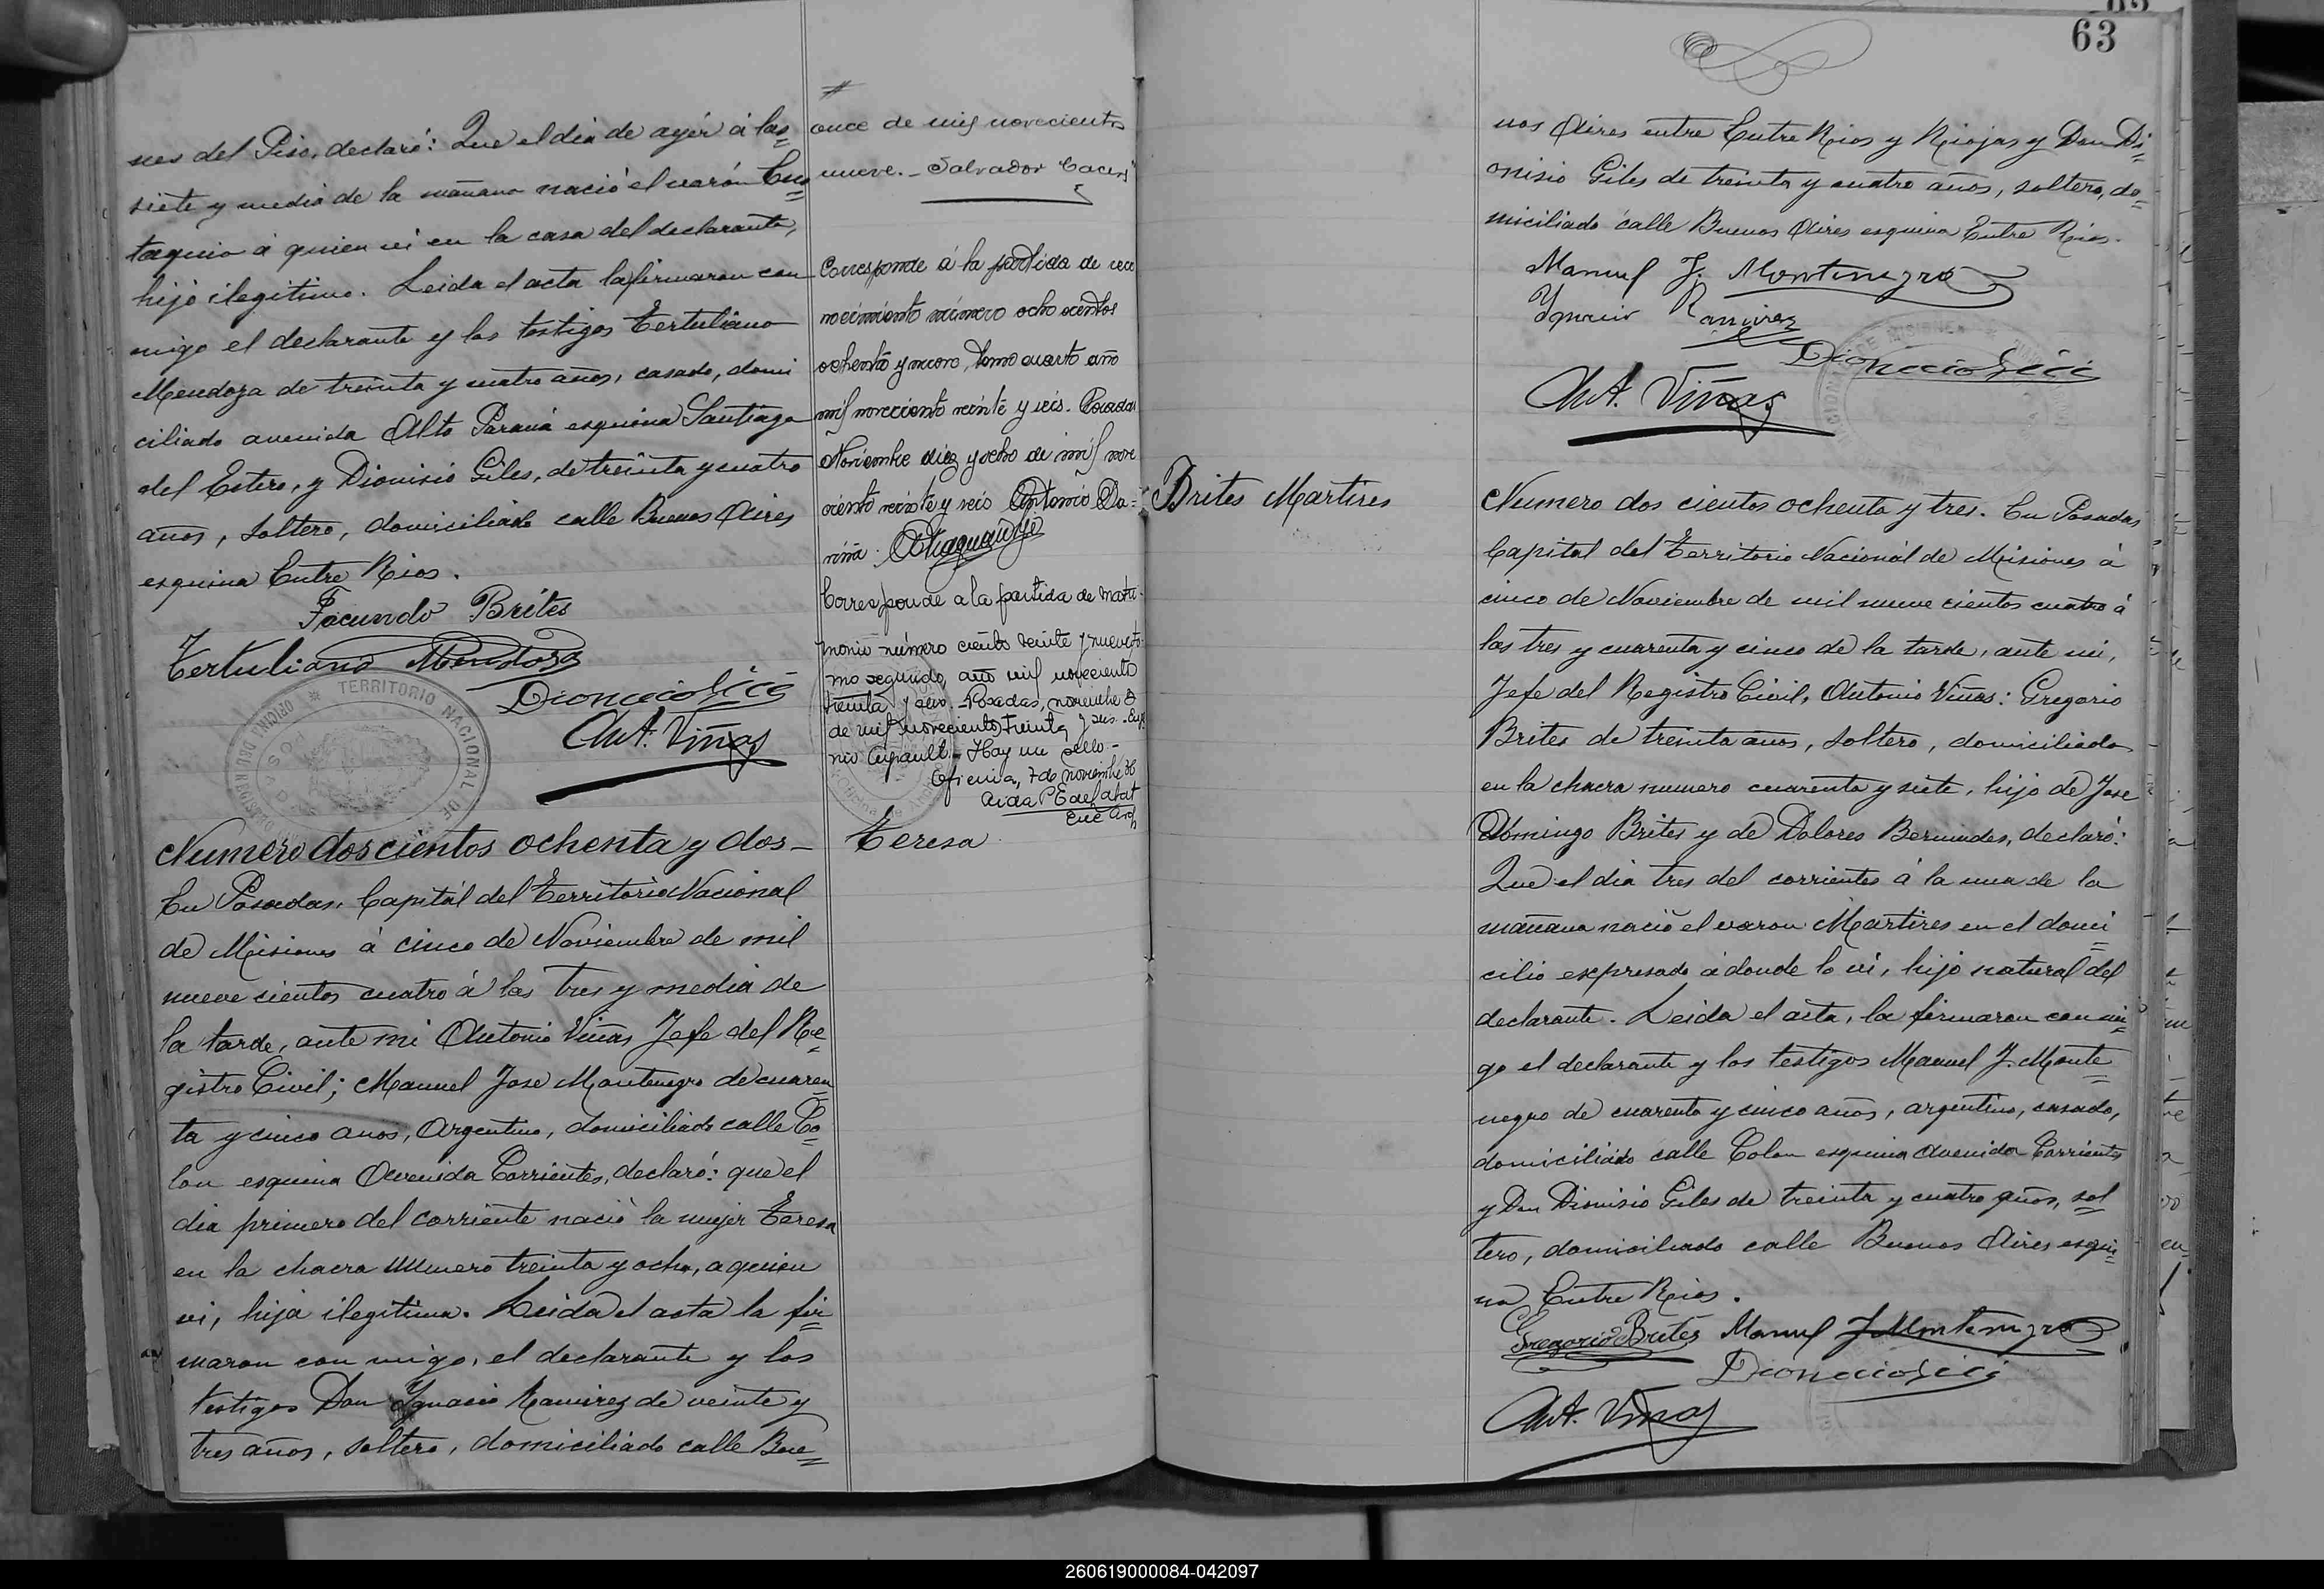 nes del Piso, declaró: Que el dia de ayér á las
siete y media de la mañana nació el varón Eus
taquio á quien ví en la casa del declarante,
hijo ilegitimo. Leida el acta la firmaron con
migo el declarante y los testigos Tertuliano
Mendoza de treinta y cuatro años, casado, domi
ciliado avenida Alto Paraná esquina Santiago
del Estero, y Dionisio Giles, de treinta y cuatro
años, soltero, domiciliado calle Buenos Aires
esquina Entre Rios.
Facundo Brites
Tertuliano Mendoza
Ant. Viñas
TERRITORIO NACIONAL DE
Numero doscientos ochenta y dos_
En Posadas, Capitál del Territorio Nacional
de Misiones á cinco de Noviembre de mil
nueve cientos cuatro á las tres y media de
la tarde, ante mi Antonio Viñas Jefe del Re
gistro Civil; Manuel Jose Montenegro de cuaren
ta y cinco anos, Argentino, domiciliado calle Co
lon esquina Avenida Corrientes, declaró: que el
dia primero del corriente nació la mujer Teresa
en la chacra numero treinta y ocho, a quien
vi, hija ilegitima. Leida el acta la fir
maron con migo, el declarante y los
testigos Don Ygnacio Ramirez de veinte y
tres años, soltero, domiciliado calle Bue
once de mil novecientos
nueve._ Salvador
Corresponde á la partida de reco
nocimiento número ocho cientos
ochenta y nueve, tomo cuarto año
mil novecientos veinte y seis. Posadas
Noviembre diez y ocho de mil nove
ciento veinte y seis Antonio
Corresponde a la partida de matri
monio número ciento veinte y nueve, to
mo segundo, año mil novecientos
treinta y seis. Posadas, noviembre
de mil novecientos treinta y seis.
Hay un sello.
Oficina, 7 de noviembre 36
Teresa
Brites Martires
63
nos Aires entre Entre Rios y Riojas y Don Di
onisio Giles de treinta y cuatro años, soltero, do
miciliado calle Buenos Aires esquina Entre Rios.
Manuel J. Montenegro
Ygnacio Ramirez
Ant. Viñas
Numero dos cientos ochenta y tres. En Posadas
Capital del Territorio Nacionál de Misiones á
cinco de Noviembre de mil nueve cientos cuatro á
las tres y cuarenta y cinco de la tarde, ante mi,
Jefe del Registro Civil, Antonio Viñas: Gregorio
Brites de treinta anos, soltero, domiciliado
en la chacra numero cuarenta y siete, hijo de Jose
Domingo Brites y de Dolores Bermudes, declaró:
Que el dia tres del corrientes á la una de la
mañana nació el varon Martires en el domi
cilio expresado á donde lo ví, hijo natural del
declarante. Leida el acta, la firmaron con mi
go el declarante y los testigos Manuel J. Monte
negro de cuarenta y cinco años, argentino, casado,
domiciliado calle Colon esquina Avenida Corrientes
y Don Dionisio Giles de treinta y cuatro años, sol
tero, domiciliado calle Buenos Aires esqui
na Entre Rios.
Gregorio Brites Manuel J Montenegro
Ant. Viñas
260619000084-042097